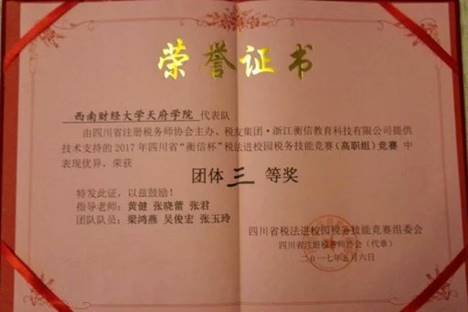 荣誉证书
西南财经大学天府学院 代表队
由四川省注册税务师协会主办、税友集团·浙江衡信教育科技有限公司提供
技术支持的 2017 年四川省“衡信杯”税法进校园税务技能竞赛（高职组）竞赛 中
表现优异，荣获
团体 三 等奖
特发此证，以兹鼓励！
指导老师：黄健 张晓蕾 张君
团队队员：梁鸿燕 吴俊宏 张玉玲
四川省税法进校园税务技能竞赛组委会
四川省注册税务师协会（代章）
二〇一七年五月六日